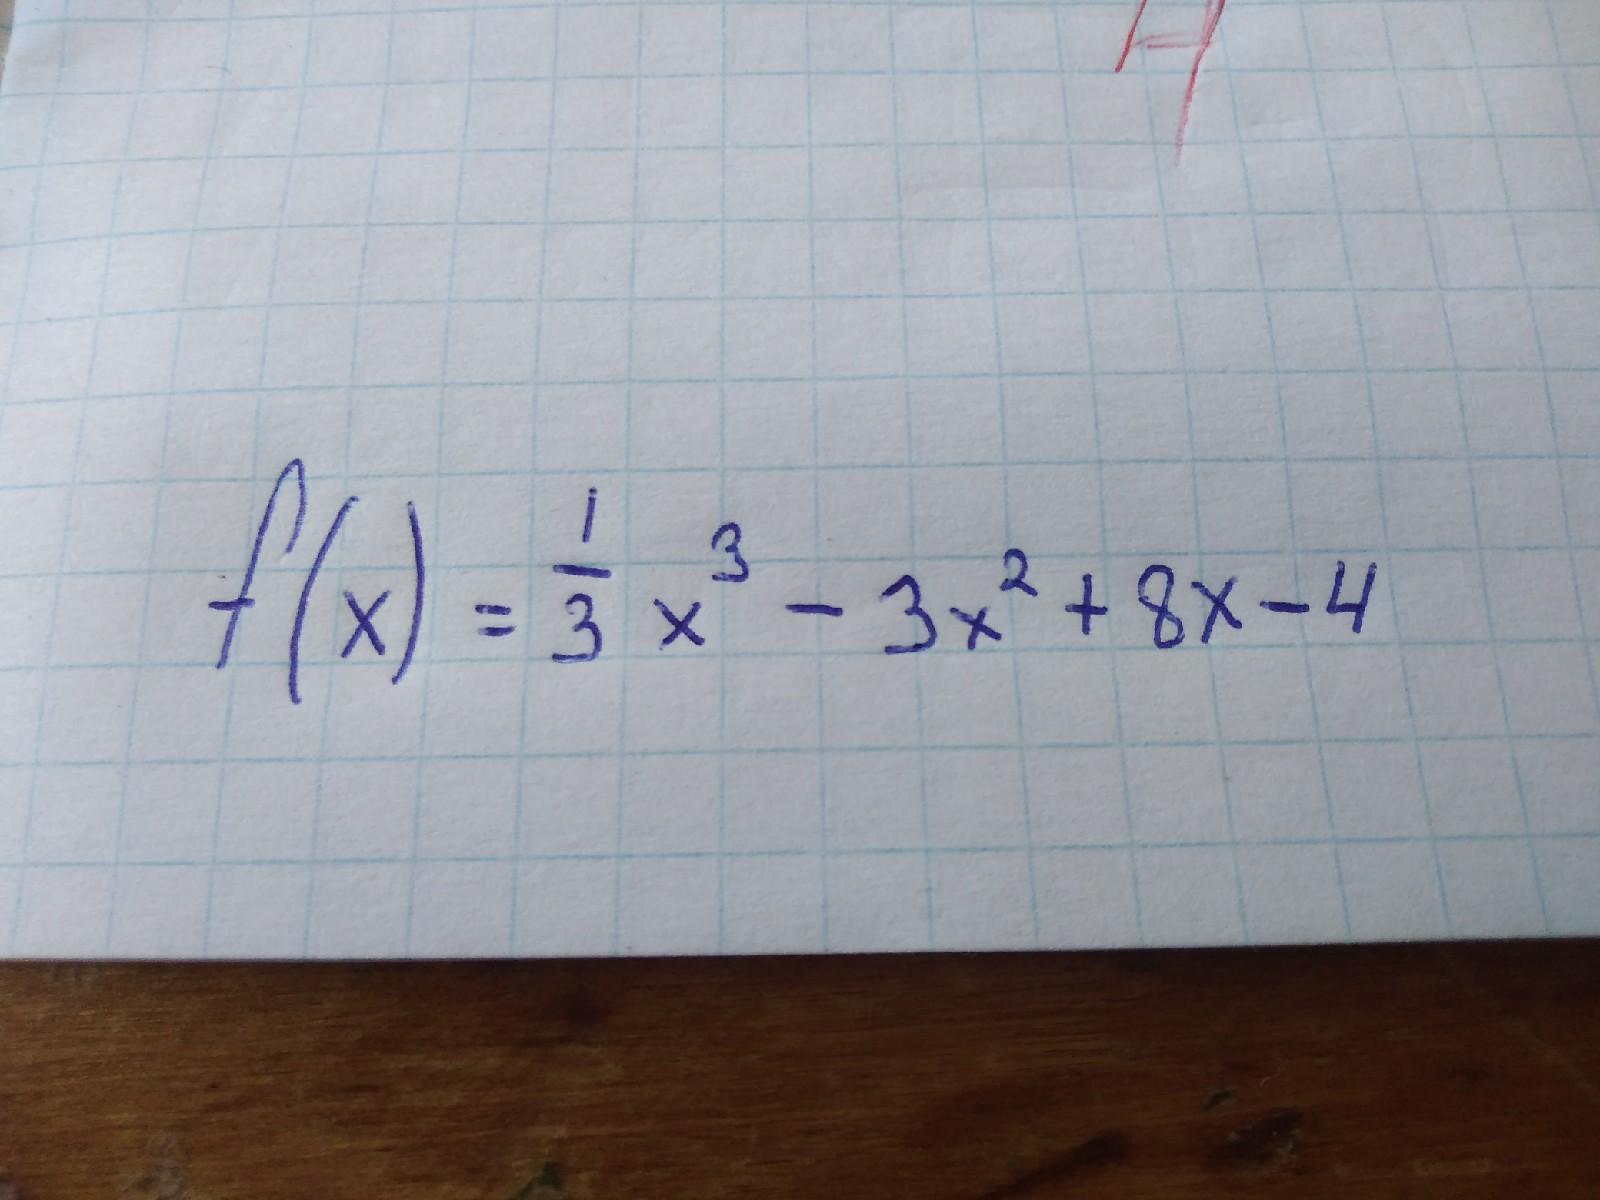 f(x) = 1/3 x³ - 3x² + 8x - 4